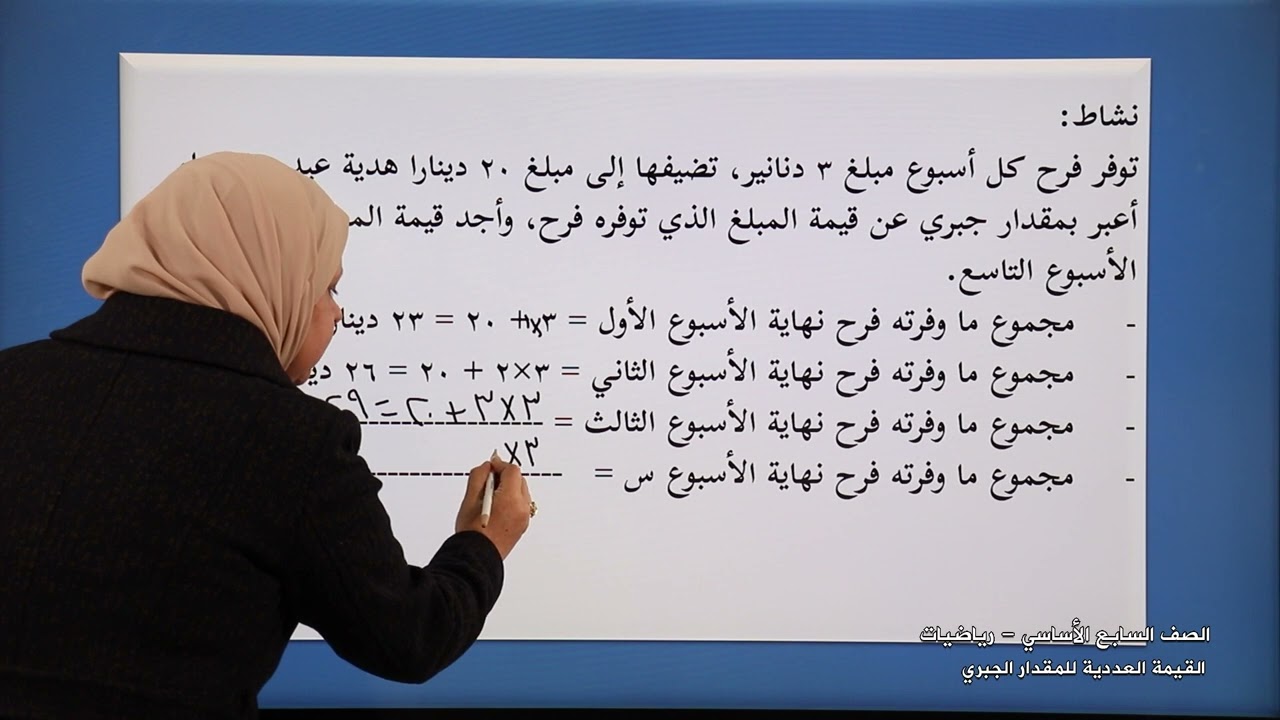 نشاط:
توفر فرح كل أسبوع مبلغ ٣ دنانير، تضيفها إلى مبلغ ٢٠ دينارا هدية
أعبر بمقدار جبري عن قيمة المبلغ الذي توفره فرح، وأجد قيمة
الأسبوع التاسع.
- مجموع ما وفرته فرح نهاية الأسبوع الأول = ٣×١+ ٢٠ = ٢٣
- مجموع ما وفرته فرح نهاية الأسبوع الثاني = ٣×٢ + ٢٠ = ٢٦
- مجموع ما وفرته فرح نهاية الأسبوع الثالث = ٣×٣ + ٢٠ = ٢٩
- مجموع ما وفرته فرح نهاية الأسبوع س = ٣×
الصف السابع الأساسي - رياضيات
القيمة العددية للمقدار الجبري